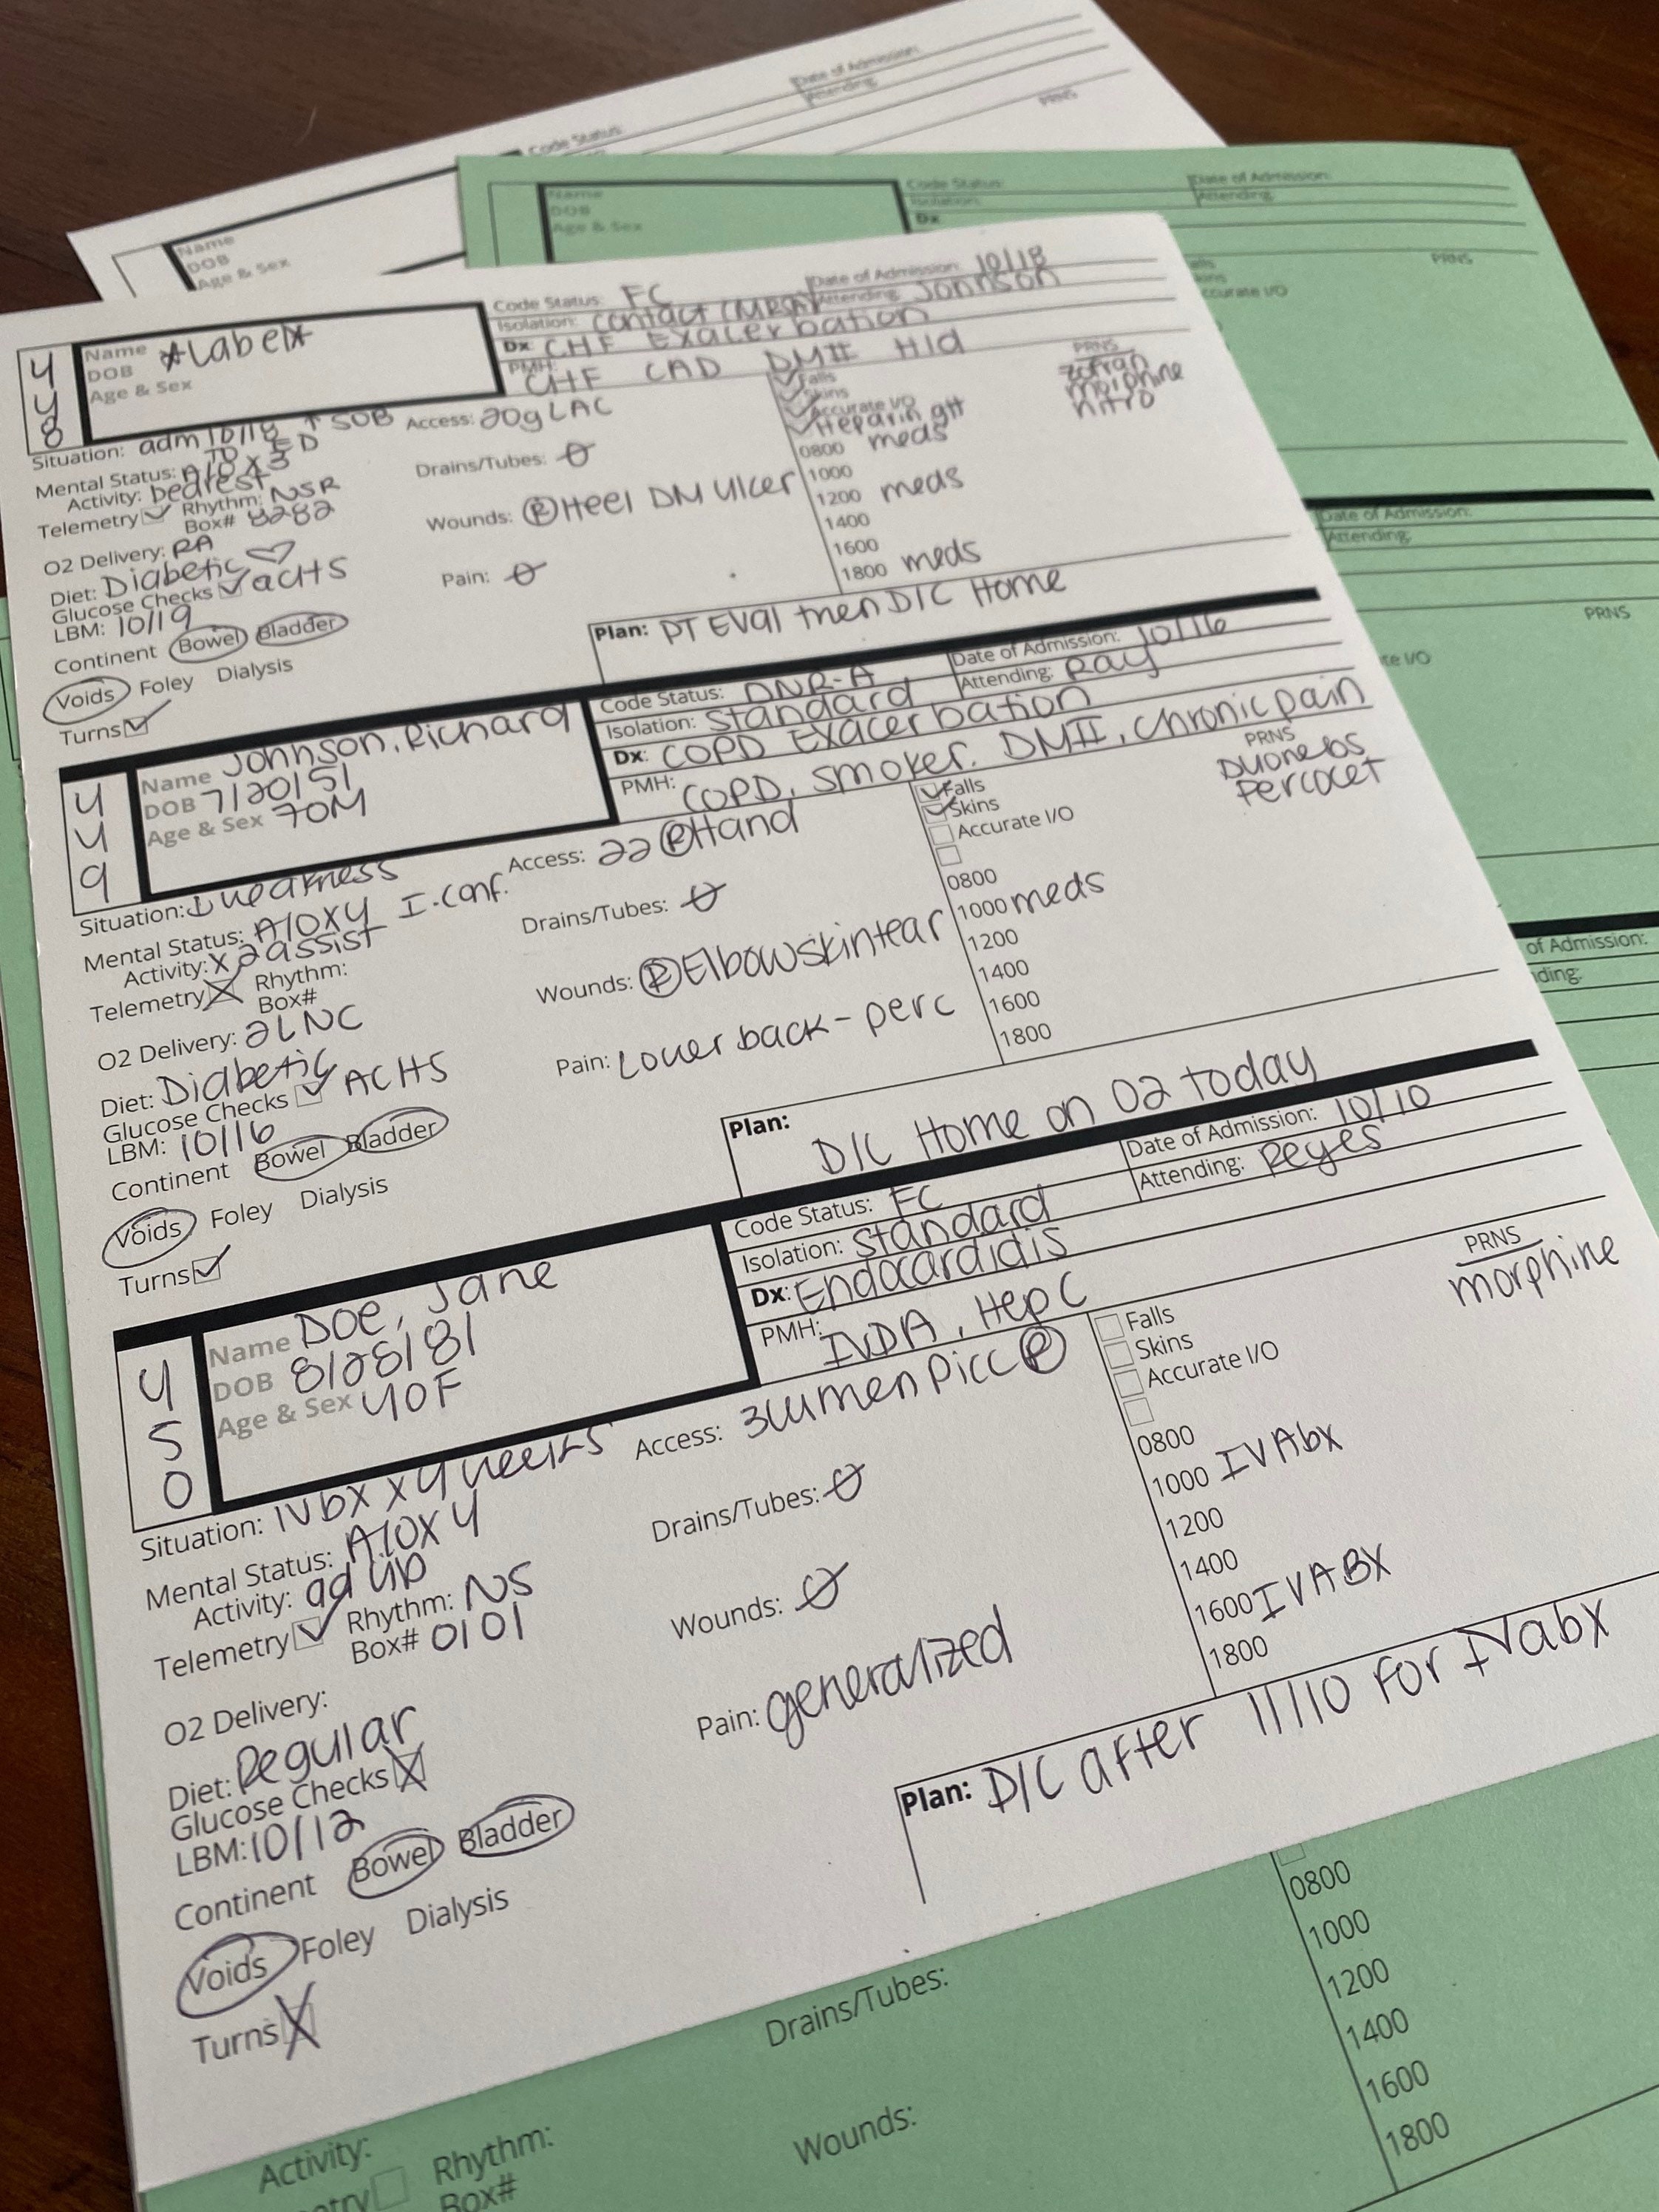 Date of Admission:
Attending:
Code Status:
PRNS
Name
DOB
Age & Sex
Name
DOB
Age & Sex
Code Status:
Isolation:
Dx
Date of Admission:
Attending:
PRNS
448
Name *Label*
DOB
Age & Sex
Code Status: FC
Date of Admission: 10/18
Isolation: Contact (MRSA)
Attending: Johnson
Dx: CHF Exacerbation
PMH: CHF CAD DMII Hld
Situation: adm 10/18 ↑ SOB
TO ED
Mental Status: A/O x 3
Activity: bedrest
Telemetry Rhythm: NSR
Box# 8282
O2 Delivery: RA
Diet: Diabetic ♡
Glucose Checks aCHS
LBM: 10/19
Continent Bowel Bladder
Voids Foley Dialysis
Turns
Access: 20g LAC
Drains/Tubes: Ø
Wounds: Ⓡ Heel DM Ulcer
Pain: Ø
Falls
Skins
Accurate I/O
Heparin gtt
0800 meds
1000
1200 meds
1400
1600
1800 meds
PRNS
zofran
morphine
nitro
Plan: PT Eval then D/C Home
449
Name Johnson, Richard
DOB 7/20/51
Age & Sex 70M
Code Status: DNR-A
Date of Admission: 10/16
Isolation: Standard
Attending: Ray
Dx: COPD Exacerbation
PMH: COPD, smoker, DMII, chronic pain
Situation: weakness
Mental Status: A/OX4 I-conf.
Activity: x2 assist
Telemetry Rhythm:
Box#
O2 Delivery: 2LNC
Diet: Diabetic
Glucose Checks ACHS
LBM: 10/16
Continent Bowel Bladder
Voids Foley Dialysis
Turns
Access: 22 Ⓡ Hand
Drains/Tubes: Ø
Wounds: Ⓡ Elbow skin tear
Pain: Lower back - perc
Falls
Skins
Accurate I/O
0800
1000 meds
1200
1400
1600
1800
PRNS
Duonebs
Percocet
Plan: D/C Home on O2 today
450
Name Doe, Jane
DOB 8/28/81
Age & Sex 40F
Code Status: FC
Date of Admission: 10/10
Isolation: Standard
Attending: Reyes
Dx: Endocardidis
PMH: IVDA, Hep C
Situation: IVbx x 4 weeks
Mental Status: A/OX4
Activity: ad lib
Telemetry Rhythm: NS
Box# 0101
O2 Delivery:
Diet: Regular
Glucose Checks
LBM: 10/12
Continent Bowel Bladder
Voids Foley Dialysis
Turns
Access: 3 lumen Picc Ⓡ
Drains/Tubes: Ø
Wounds: Ø
Pain: generalized
Falls
Skins
Accurate I/O
0800
1000 IVAbx
1200
1400
1600 IVABX
1800
PRNS
morphine
Plan: D/C after 11/10 for IVabx
Date of Admission:
Attending:
PRNS
of Admission:
0800
1000
1200
1400
1600
1800
Drains/Tubes:
Wounds:
Activity:
Rhythm:
Box#